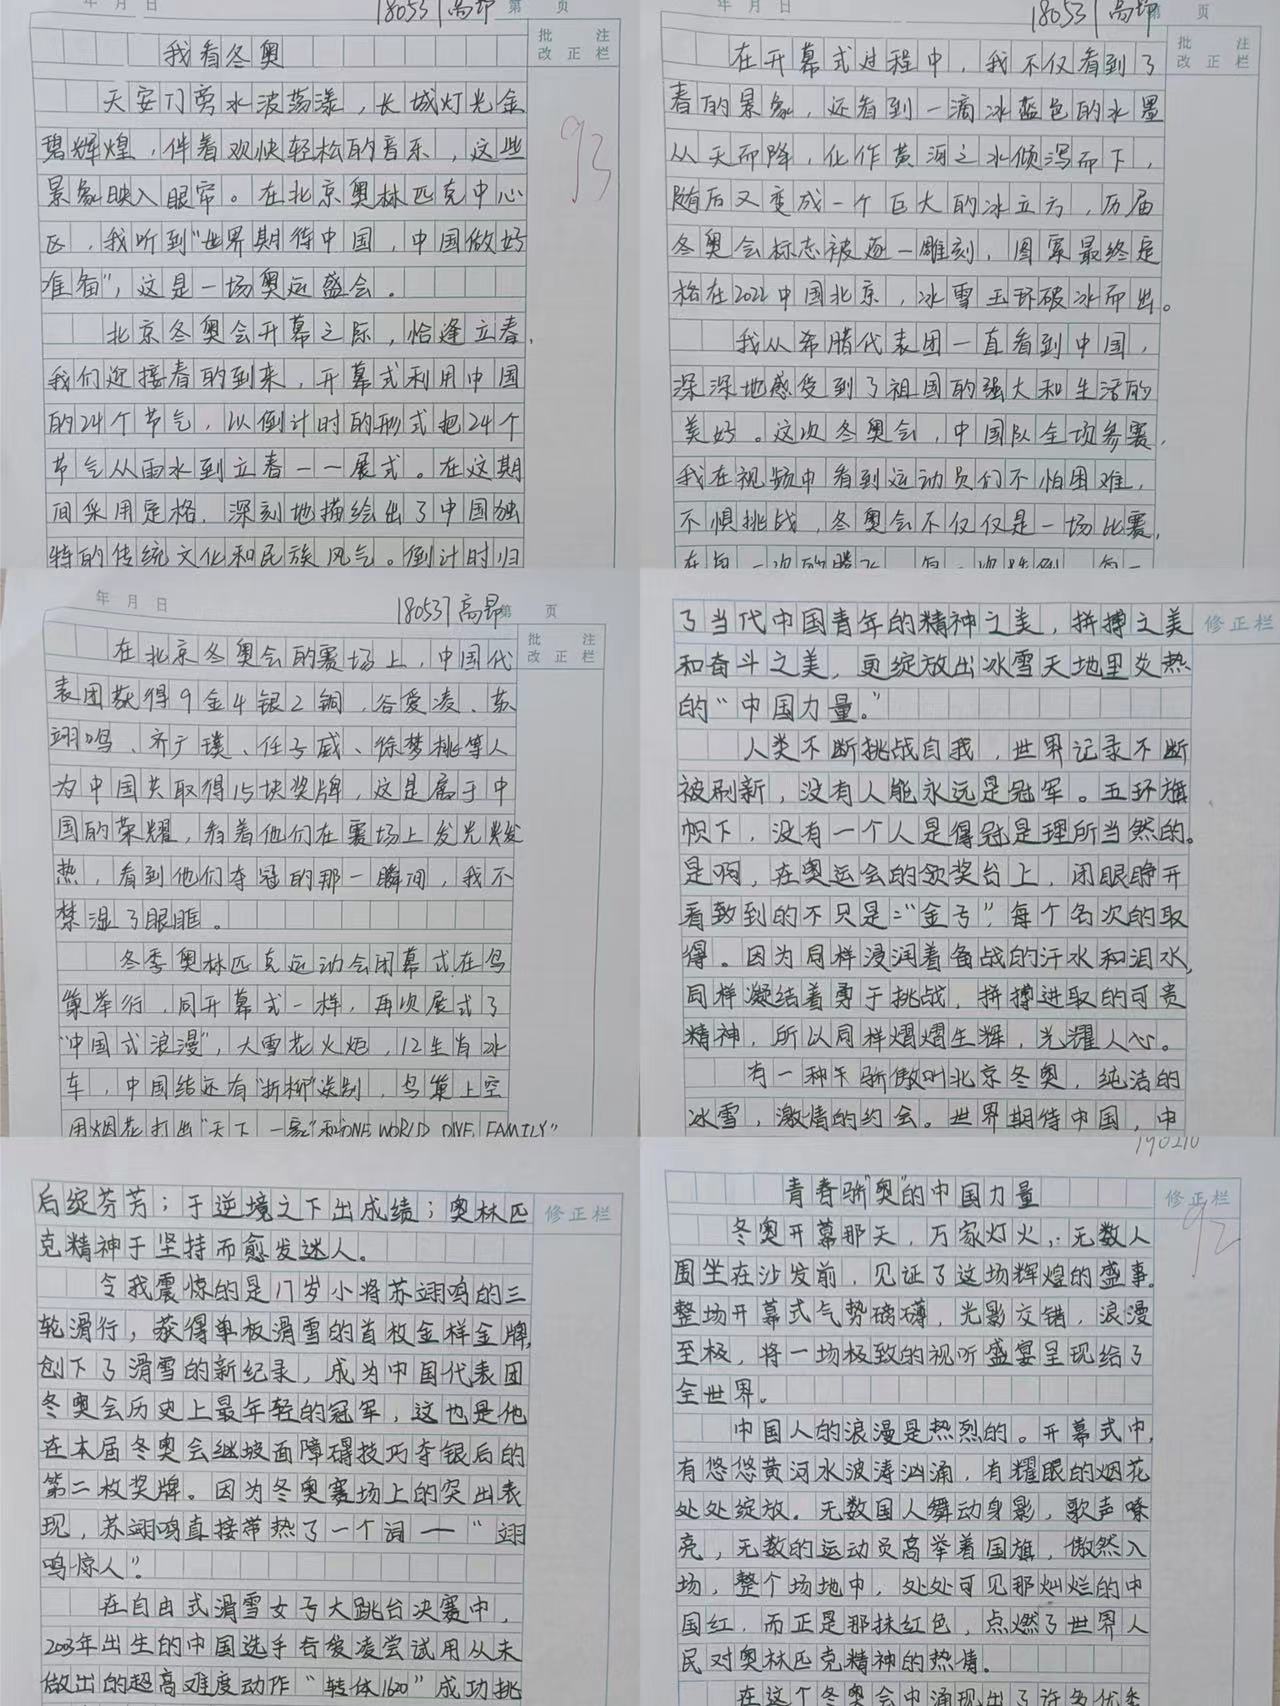 年 月 日
180531 高昂 第 页
批 注
改 正 栏
我看冬奥
天安门旁水波荡漾，长城灯光金
碧辉煌，伴着欢快轻松的音乐，这些
景象映入眼帘。在北京奥林匹克中心
区，我听到“世界期待中国，中国做好
准备”，这是一场奥运盛会。
北京冬奥会开幕之际，恰逢立春，
我们迎接春的到来，开幕式利用中国
的24个节气，以倒计时的形式把24个
节气从雨水到立春一一展式。在这期
间采用定格，深刻地描绘出了中国独
特的传统文化和民族风气。倒计时归
93
年 月 日
180531 高昂 第 页
批 注
改 正 栏
在开幕式过程中，我不仅看到了
春的景象，还看到一滴冰蓝色的水墨
从天而降，化作黄河之水倾泻而下，
随后又变成一个巨大的冰立方，历届
冬奥会标志被逐一雕刻，图案最终定
格在2022中国北京，冰雪五环破冰而出。
我从希腊代表团一直看到中国，
深深地感受到了祖国的强大和生活的
美好。这次冬奥会，中国队全项参赛，
我在视频中看到运动员们不怕困难，
不惧挑战，冬奥会不仅仅是一场比赛，
在每一次的腾飞，每一次跌倒，每一
年 月 日
180531 高昂 第 页
批 注
改 正 栏
在北京冬奥会的赛场上，中国代
表团获得9金4银2铜，谷爱凌、苏
翊鸣、齐广璞、任子威、徐梦桃等人
为中国共取得15块奖牌，这是属于中
国的荣耀，看着他们在赛场上发光发
热，看到他们夺冠的那一瞬间，我不
禁湿了眼眶。
冬季奥林匹克运动会闭幕式在鸟
巢举行，同开幕式一样，再次展式了
“中国式浪漫”，大雪花火炬，12生肖冰
车，中国结还有“折柳”送别，鸟巢上空
用烟花打出“天下一家”和ONE WORLD ONE FAMILY”
修正栏
了当代中国青年的精神之美，拼搏之美
和奋斗之美，更绽放出冰雪天地里炎热
的“中国力量。”
人类不断挑战自我，世界记录不断
被刷新，没有人能永远是冠军。五环旗
帜下，没有一个人是得冠是理所当然的。
是啊，在奥运会的领奖台上，闭眼睁开
看致到的不只是“金子”，每个名次的取
得。因为同样浸润着备战的汗水和泪水，
同样凝结着勇于挑战，拼搏进取的可贵
精神，所以同样熠熠生辉，光耀人心。
有一种骄傲叫北京冬奥，纯洁的
冰雪，激情的约会。世界期待中国，中
后绽芬芳；于逆境之下出成绩；奥林匹
克精神于坚持而愈发迷人。
修正栏
令我震惊的是17岁小将苏翊鸣的三
轮滑行，获得单板滑雪的首枚金样金牌，
创下了滑雪的新纪录，成为中国代表团
冬奥会历史上最年轻的冠军，这也是他
在本届冬奥会继坡面障碍技巧夺银后的
第二枚奖牌。因为冬奥赛场上的突出表
现，苏翊鸣直接带热了一个词——“翊
鸣惊人”。
在自由式滑雪女子大跳台决赛中，
2003年出生的中国选手谷爱凌尝试用从未
做出的超高难度动作“转体1620”成功挑
190210
修正栏
92
青春骄“奥”的中国力量
冬奥开幕那天，万家灯火，无数人
围坐在沙发前，见证了这场辉煌的盛事。
整场开幕式气势磅礴，光影交错，浪漫
至极，将一场极致的视听盛宴呈现给了
全世界。
中国人的浪漫是热烈的。开幕式中，
有悠悠黄河水波涛汹涌，有耀眼的烟花
处处绽放。无数国人舞动身影，歌声嘹
亮，无数的运动员高举着国旗，傲然入
场，整个场地中，处处可见那灿烂的中
国红，而正是那抹红色，点燃了世界人
民对奥林匹克精神的热情。
在这个冬奥会中涌现出了许多优秀